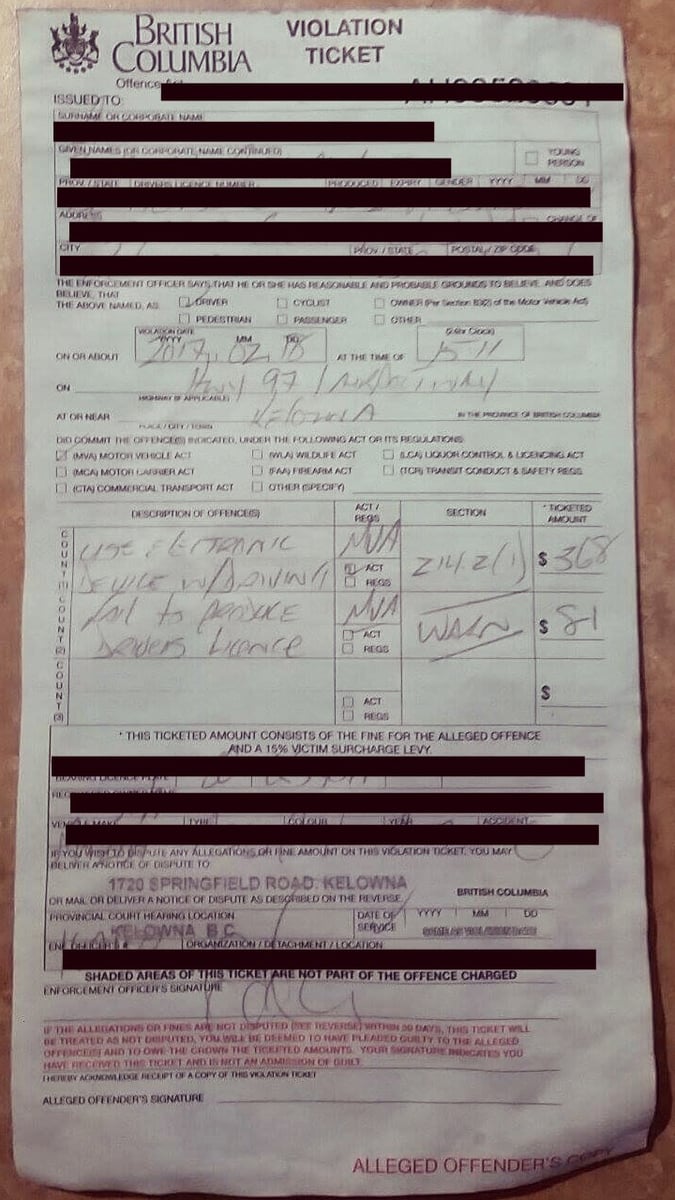 BRITISH COLUMBIA
VIOLATION TICKET
Offence
ISSUED TO:
SURNAME OR CORPORATE NAME
GIVEN NAMES (OR CORPORATE NAME CONTINUED)
YOUNG PERSON
PROV / STATE DRIVERS LICENCE NUMBER PRODUCED EXPIRY GENDER YYYY MM DD
ADDRESS CHANGE OF
CITY PROV / STATE POSTAL / ZIP CODE
THE ENFORCEMENT OFFICER SAYS THAT HE OR SHE HAS REASONABLE AND PROBABLE GROUNDS TO BELIEVE, AND DOES
BELIEVE, THAT
THE ABOVE NAMED, AS: DRIVER CYCLIST OWNER (Per Section 83(2) of the Motor Vehicle Act)
PEDESTRIAN PASSENGER OTHER
VIOLATION DATE
YYYY MM DD (24hr Clock)
ON OR ABOUT 2017 02 18 AT THE TIME OF 15 11
ON Hwy 97 /
HIGHWAY (IF APPLICABLE)
AT OR NEAR KELOWNA IN THE PROVINCE OF BRITISH COLUMBIA
PLACE / CITY / TOWN
DID COMMIT THE OFFENCE(S) INDICATED, UNDER THE FOLLOWING ACT OR ITS REGULATIONS:
(MVA) MOTOR VEHICLE ACT (WLA) WILDLIFE ACT (LCA) LIQUOR CONTROL & LICENCING ACT
(MCA) MOTOR CARRIER ACT (FAA) FIREARM ACT (TCR) TRANSIT CONDUCT & SAFETY REGS.
(CTA) COMMERCIAL TRANSPORT ACT OTHER (SPECIFY)
DESCRIPTION OF OFFENCE(S) ACT / REGS SECTION * TICKETED AMOUNT
COUNT (1) USE ELECTRONIC DEVICE W/DRIVING MVA ACT REGS 214.2(1) $ 368
COUNT (2) FAIL TO PRODUCE DRIVERS LICENCE MVA ACT REGS WARN $ 81
COUNT (3) ACT REGS $
* THIS TICKETED AMOUNT CONSISTS OF THE FINE FOR THE ALLEGED OFFENCE
AND A 15% VICTIM SURCHARGE LEVY.
BEARING LICENCE PLATE
TYPE COLOUR YEAR ACCIDENT
IF YOU WISH TO DISPUTE ANY ALLEGATIONS OR FINE AMOUNT ON THIS VIOLATION TICKET, YOU MAY
DELIVER A NOTICE OF DISPUTE TO:
1720 SPRINGFIELD ROAD, KELOWNA BRITISH COLUMBIA
OR MAIL OR DELIVER A NOTICE OF DISPUTE AS DESCRIBED ON THE REVERSE.
PROVINCIAL COURT HEARING LOCATION DATE OF SERVICE YYYY MM DD
KELOWNA B.C. SAME AS VIOLATION DATE
ORGANIZATION / DETACHMENT / LOCATION
SHADED AREAS OF THIS TICKET ARE NOT PART OF THE OFFENCE CHARGED
ENFORCEMENT OFFICER'S SIGNATURE
IF THE ALLEGATIONS OR FINES ARE NOT DISPUTED (SEE REVERSE) WITHIN 30 DAYS, THIS TICKET WILL
BE TREATED AS NOT DISPUTED, YOU WILL BE DEEMED TO HAVE PLEADED GUILTY TO THE ALLEGED
OFFENCE(S) AND TO OWE THE CROWN THE TICKETED AMOUNTS. YOUR SIGNATURE INDICATES YOU
HAVE RECEIVED THIS TICKET AND IS NOT AN ADMISSION OF GUILT.
I HEREBY ACKNOWLEDGE RECEIPT OF A COPY OF THIS VIOLATION TICKET
ALLEGED OFFENDER'S SIGNATURE
ALLEGED OFFENDER'S COPY